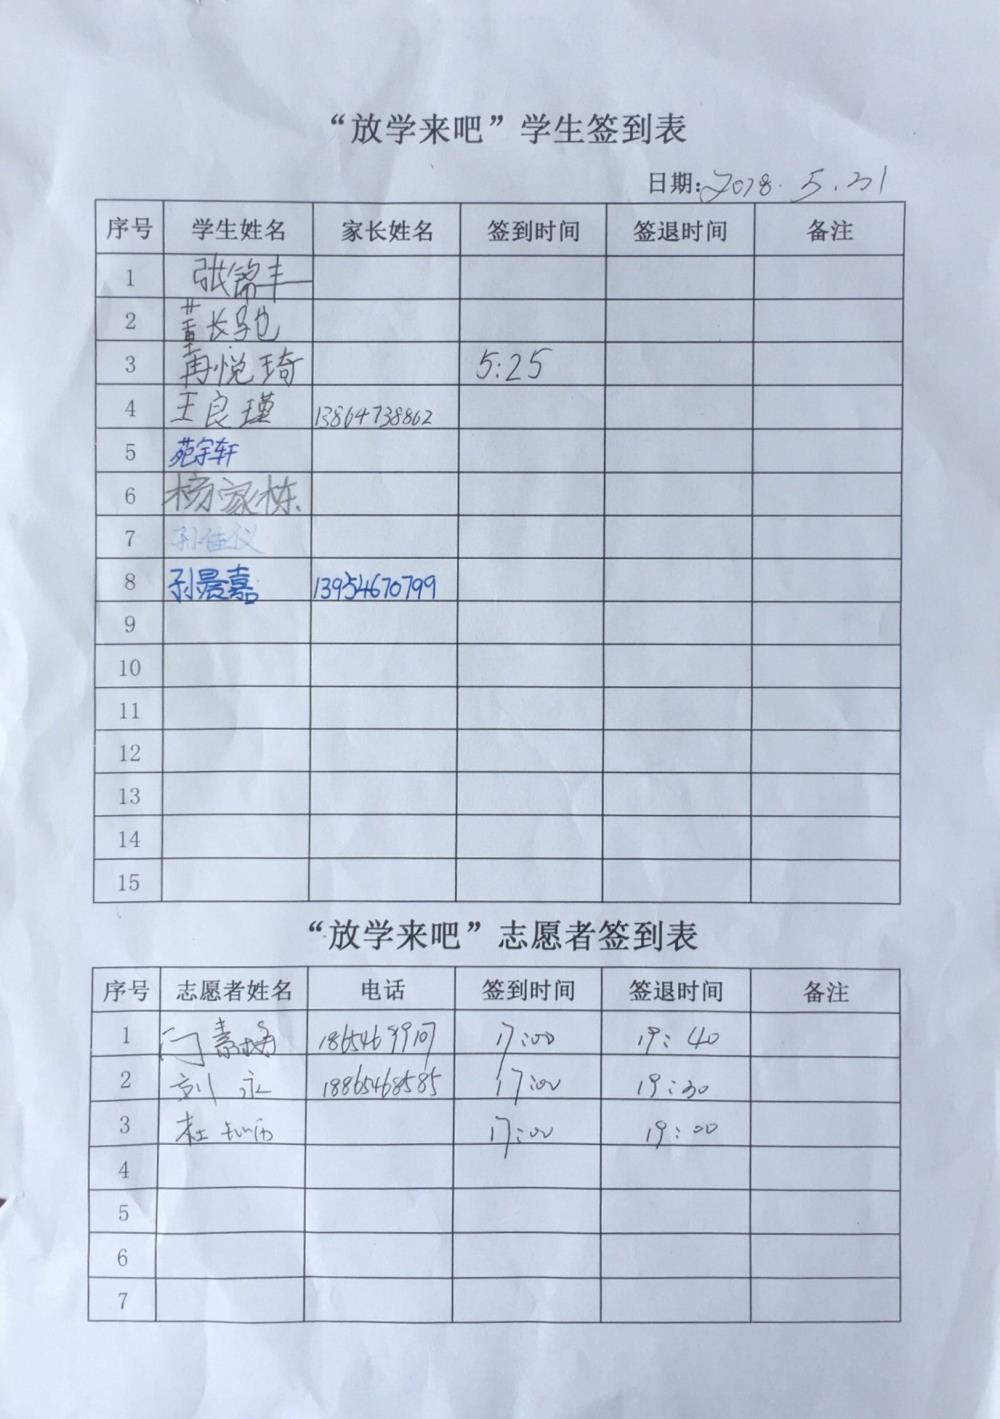 “放学来吧”学生签到表
日期:2018.5.21
序号 学生姓名 家长姓名 签到时间 签退时间 备注
1 张锦丰
2 董长驰
3 冉悦琦 5:25
4 王良瑾 13864738862
5 苑宇轩
6 杨家栋
7 孙佳仪
8 孙晨嘉 13954670799
9
10
11
12
13
14
15
“放学来吧”志愿者签到表
序号 志愿者姓名 电话 签到时间 签退时间 备注
1 闫素梅 18654699107 17:00 19:40
2 刘永 18865468585 17:00 19:30
3 杜 17:00 19:00
4
5
6
7